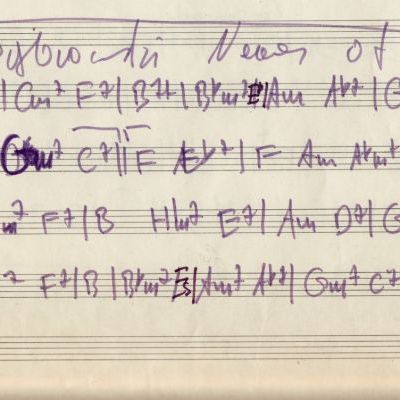 Never of
| Cm7 F7 | B7+ | Bbm7 E | Am Ab7 | G
Gm7 C7 || F Eb7 | F Am Abm7
m7 F7 | B Hm7 E7 | Am D7 | G
7 F7 | B | Bbm7 Es | Am7 Ab7 | Gm7 C7